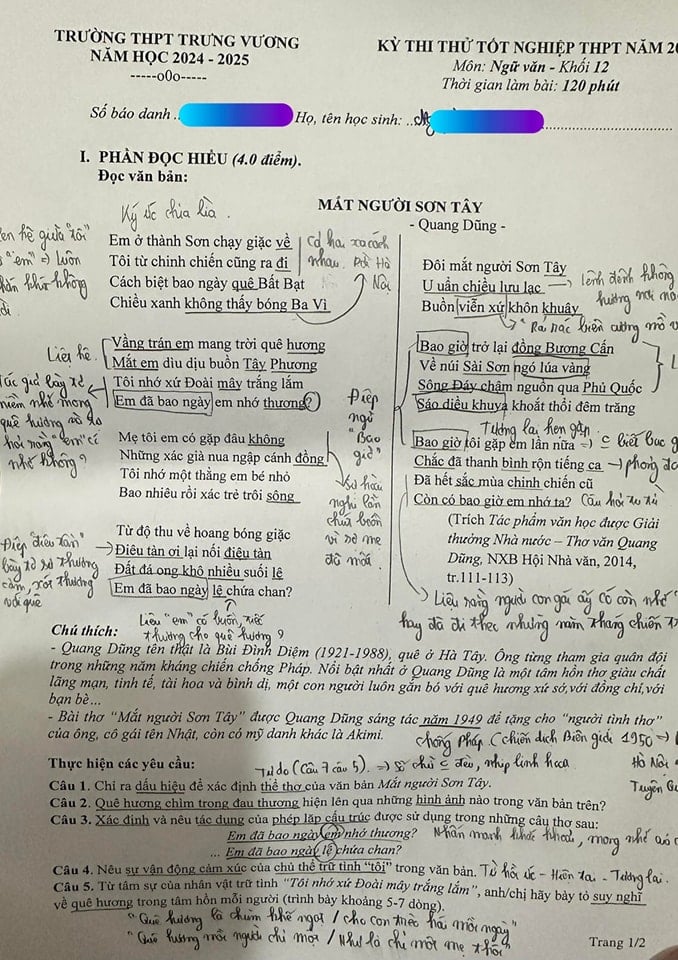 TRƯỜNG THPT TRƯNG VƯƠNG
NĂM HỌC 2024 - 2025
-----o0o-----
KỲ THI THỬ TỐT NGHIỆP THPT NĂM 20
Môn: Ngữ văn - Khối 12
Thời gian làm bài: 120 phút
Số báo danh
Họ, tên học sinh:
I. PHẦN ĐỌC HIỂU (4.0 điểm).
Đọc văn bản:
Ký ức chia lìa.
MẮT NGƯỜI SƠN TÂY
- Quang Dũng -
Em ở thành Sơn chạy giặc về
Tôi từ chinh chiến cũng ra đi
Cách biệt bao ngày quê Bất Bạt
Chiều xanh không thấy bóng Ba Vì
Vầng trán em mang trời quê hương
Mắt em dìu dịu buồn Tây Phương
Tôi nhớ xứ Đoài mây trắng lắm
Em đã bao ngày em nhớ thương?
Liệt kê.
Tác giả bày tỏ
niềm nhớ mong
quê hương và
hỏi rằng "em" có
nhớ không?
Mẹ tôi em có gặp đâu không
Những xác già nua ngập cánh đồng
Tôi nhớ một thằng em bé nhỏ
Bao nhiêu rồi xác trẻ trôi sông
Điệp
ngữ
"Bao
giờ"
Từ độ thu về hoang bóng giặc
Điêu tàn ơi lại nối điêu tàn
Đất đá ong khô nhiều suối lệ
Em đã bao ngày lệ chứa chan?
Điệp "điêu tàn"
bày tỏ sự thương
cảm, xót thương
với quê
Liệu "em" có buồn,
thương cho quê hương?
Đôi mắt người Sơn Tây
U uẩn chiều lưu lạc
Buồn viễn xứ khôn khuây
lênh đênh không
Bao giờ trở lại đồng Bương Cấn
Về núi Sài Sơn ngó lúa vàng
Sông Đáy chậm nguồn qua Phủ Quốc
Sáo diều khuya khoắt thổi đêm trăng
Tương lai hẹn gặp.
Bao giờ tôi gặp em lần nữa
Chắc đã thanh bình rộn tiếng ca
Đã hết sắc mùa chinh chiến cũ
Còn có bao giờ em nhớ ta?
Câu hỏi tu từ
(Trích Tác phẩm văn học được Giải
thưởng Nhà nước – Thơ văn Quang
Dũng, NXB Hội Nhà văn, 2014,
tr.111-113)
Liệu rằng người con gái ấy có còn nhớ
hay đã đi theo những năm tháng chiến
Chú thích:
- Quang Dũng tên thật là Bùi Đình Diệm (1921-1988), quê ở Hà Tây. Ông từng tham gia quân đội
trong những năm kháng chiến chống Pháp. Nổi bật nhất ở Quang Dũng là một tâm hồn thơ giàu chất
lãng mạn, tinh tế, tài hoa và bình dị, một con người luôn gắn bó với quê hương xứ sở,với đồng chí,với
bạn bè…
- Bài thơ “Mắt người Sơn Tây” được Quang Dũng sáng tác năm 1949 để tặng cho “người tình thơ”
của ông, cô gái tên Nhật, còn có mỹ danh khác là Akimi.
chống Pháp (chiến dịch Biên giới 1950
Thực hiện các yêu cầu:
Tự do (Câu 7 câu 5).
Câu 1. Chỉ ra dấu hiệu để xác định thể thơ của văn bản Mắt người Sơn Tây.
Câu 2. Quê hương chìm trong đau thương hiện lên qua những hình ảnh nào trong văn bản trên?
Câu 3. Xác định và nêu tác dụng của phép lặp cấu trúc được sử dụng trong những câu thơ sau:
Em đã bao ngày em nhớ thương?
... Em đã bao ngày lệ chứa chan?
Câu 4. Nêu sự vận động cảm xúc của chủ thể trữ tình “tôi” trong văn bản. Từ hồi ức - Hiện tại - Tương lai.
Câu 5. Từ tâm sự của nhân vật trữ tình “Tôi nhớ xứ Đoài mây trắng lắm”, anh/chị hãy bày tỏ suy nghĩ
về quê hương trong tâm hồn mỗi người (trình bày khoảng 5-7 dòng).
"Quê hương là chùm khế ngọt / cho con trèo hái mỗi ngày"
"Quê hương mỗi người chỉ một / Như là chỉ một mẹ thôi"
Trang 1/2